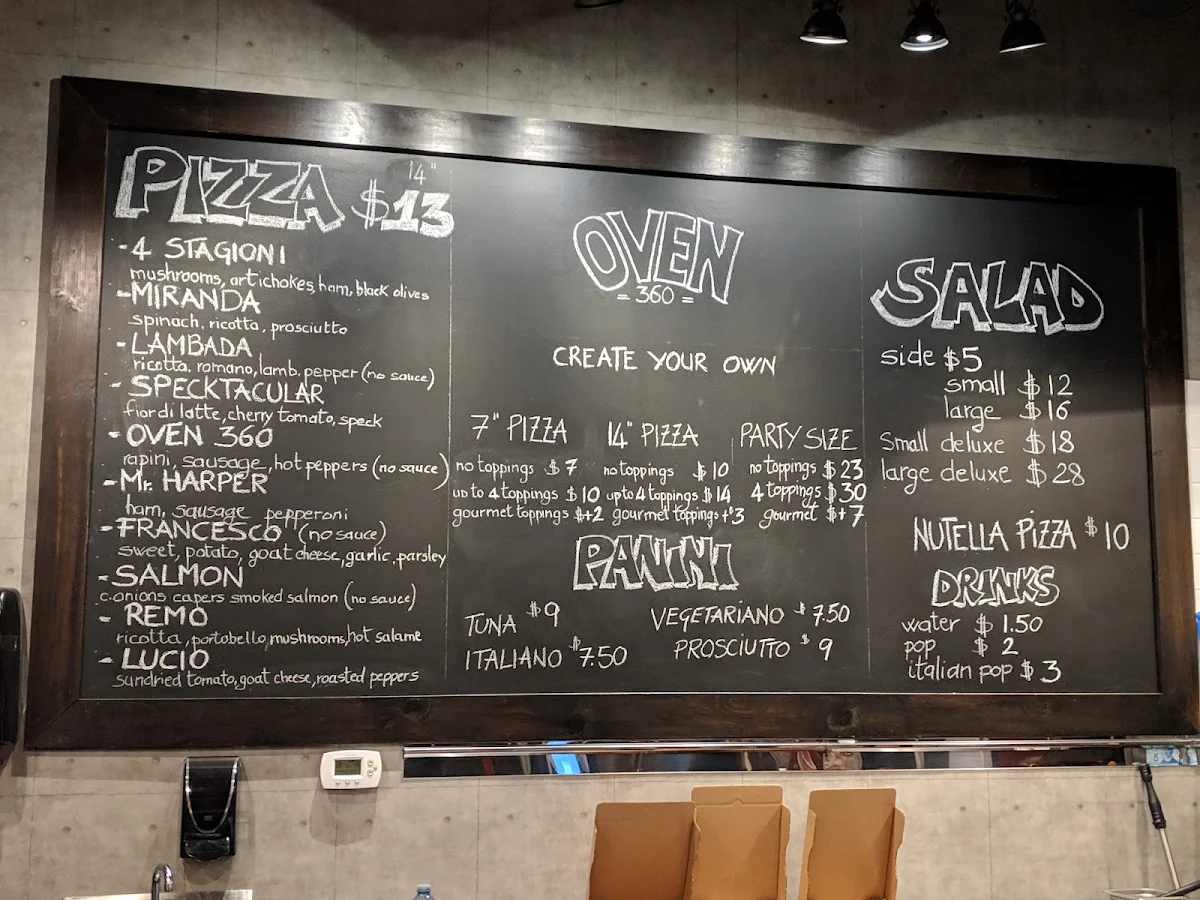 PIZZA 14" $13
-4 STAGIONI
mushrooms, artichokes, ham, black olives
-MIRANDA
spinach, ricotta, prosciutto
-LAMBADA
ricotta, romano, lamb, pepper (no sauce)
- SPECKTACULAR
fior di latte, cherry tomato, speck
-OVEN 360
rapini, sausage, hot peppers (no sauce)
-Mr. HARPER
ham, sausage pepperoni
-FRANCESCO (no sauce)
sweet, potato, goat cheese, garlic, parsley
-SALMON
c.onions capers smoked salmon (no sauce)
- REMO
ricotta, portobello, mushrooms, hot salame
- LUCIO
sundried tomato, goat cheese, roasted peppers
OVEN
= 360 =
CREATE YOUR OWN
7" PIZZA
no toppings $7
up to 4 toppings $10
gourmet toppings $+2
14" PIZZA
no toppings $10
up to 4 toppings $14
gourmet toppings +$3
PARTY SIZE
no toppings $23
4 toppings $30
gourmet $+7
PANINI
TUNA $9
ITALIANO $7.50
VEGETARIANO $7.50
PROSCIUTTO $9
SALAD
side $5
small $12
large $16
Small deluxe $18
large deluxe $28
NUTELLA PIZZA $10
DRINKS
water $1.50
pop $2
italian pop $3